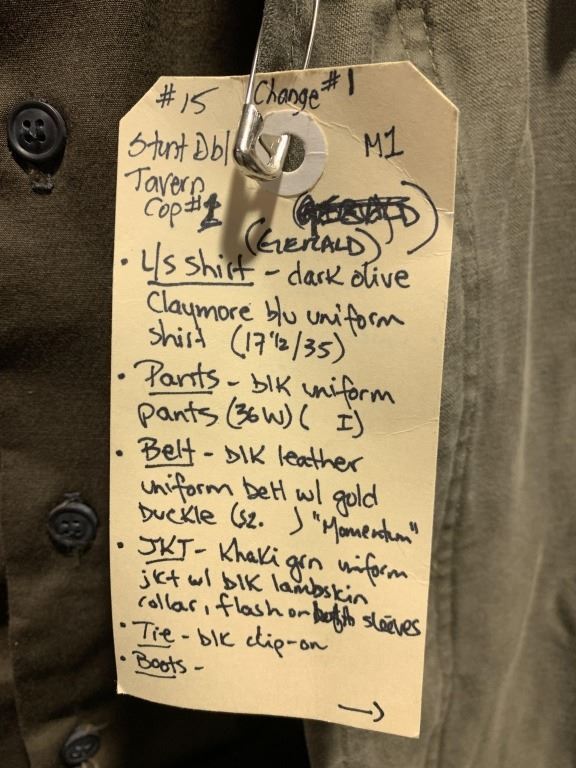 #15 Change #1
Stunt Dbl M1
Tavern
Cop #1
(GERALD)
• L/S Shirt - dark olive
Claymore blu uniform
shirt (17 1/2/35)
• Pants - blk uniform
pants (36W) ( I)
• Belt - blk leather
uniform belt w/ gold
buckle (sz. ) "Momentum"
• JKT - Khaki grn uniform
jkt w/ blk lambskin
collar, flash on both sleeves
• Tie - blk clip-on
• Boots -
→